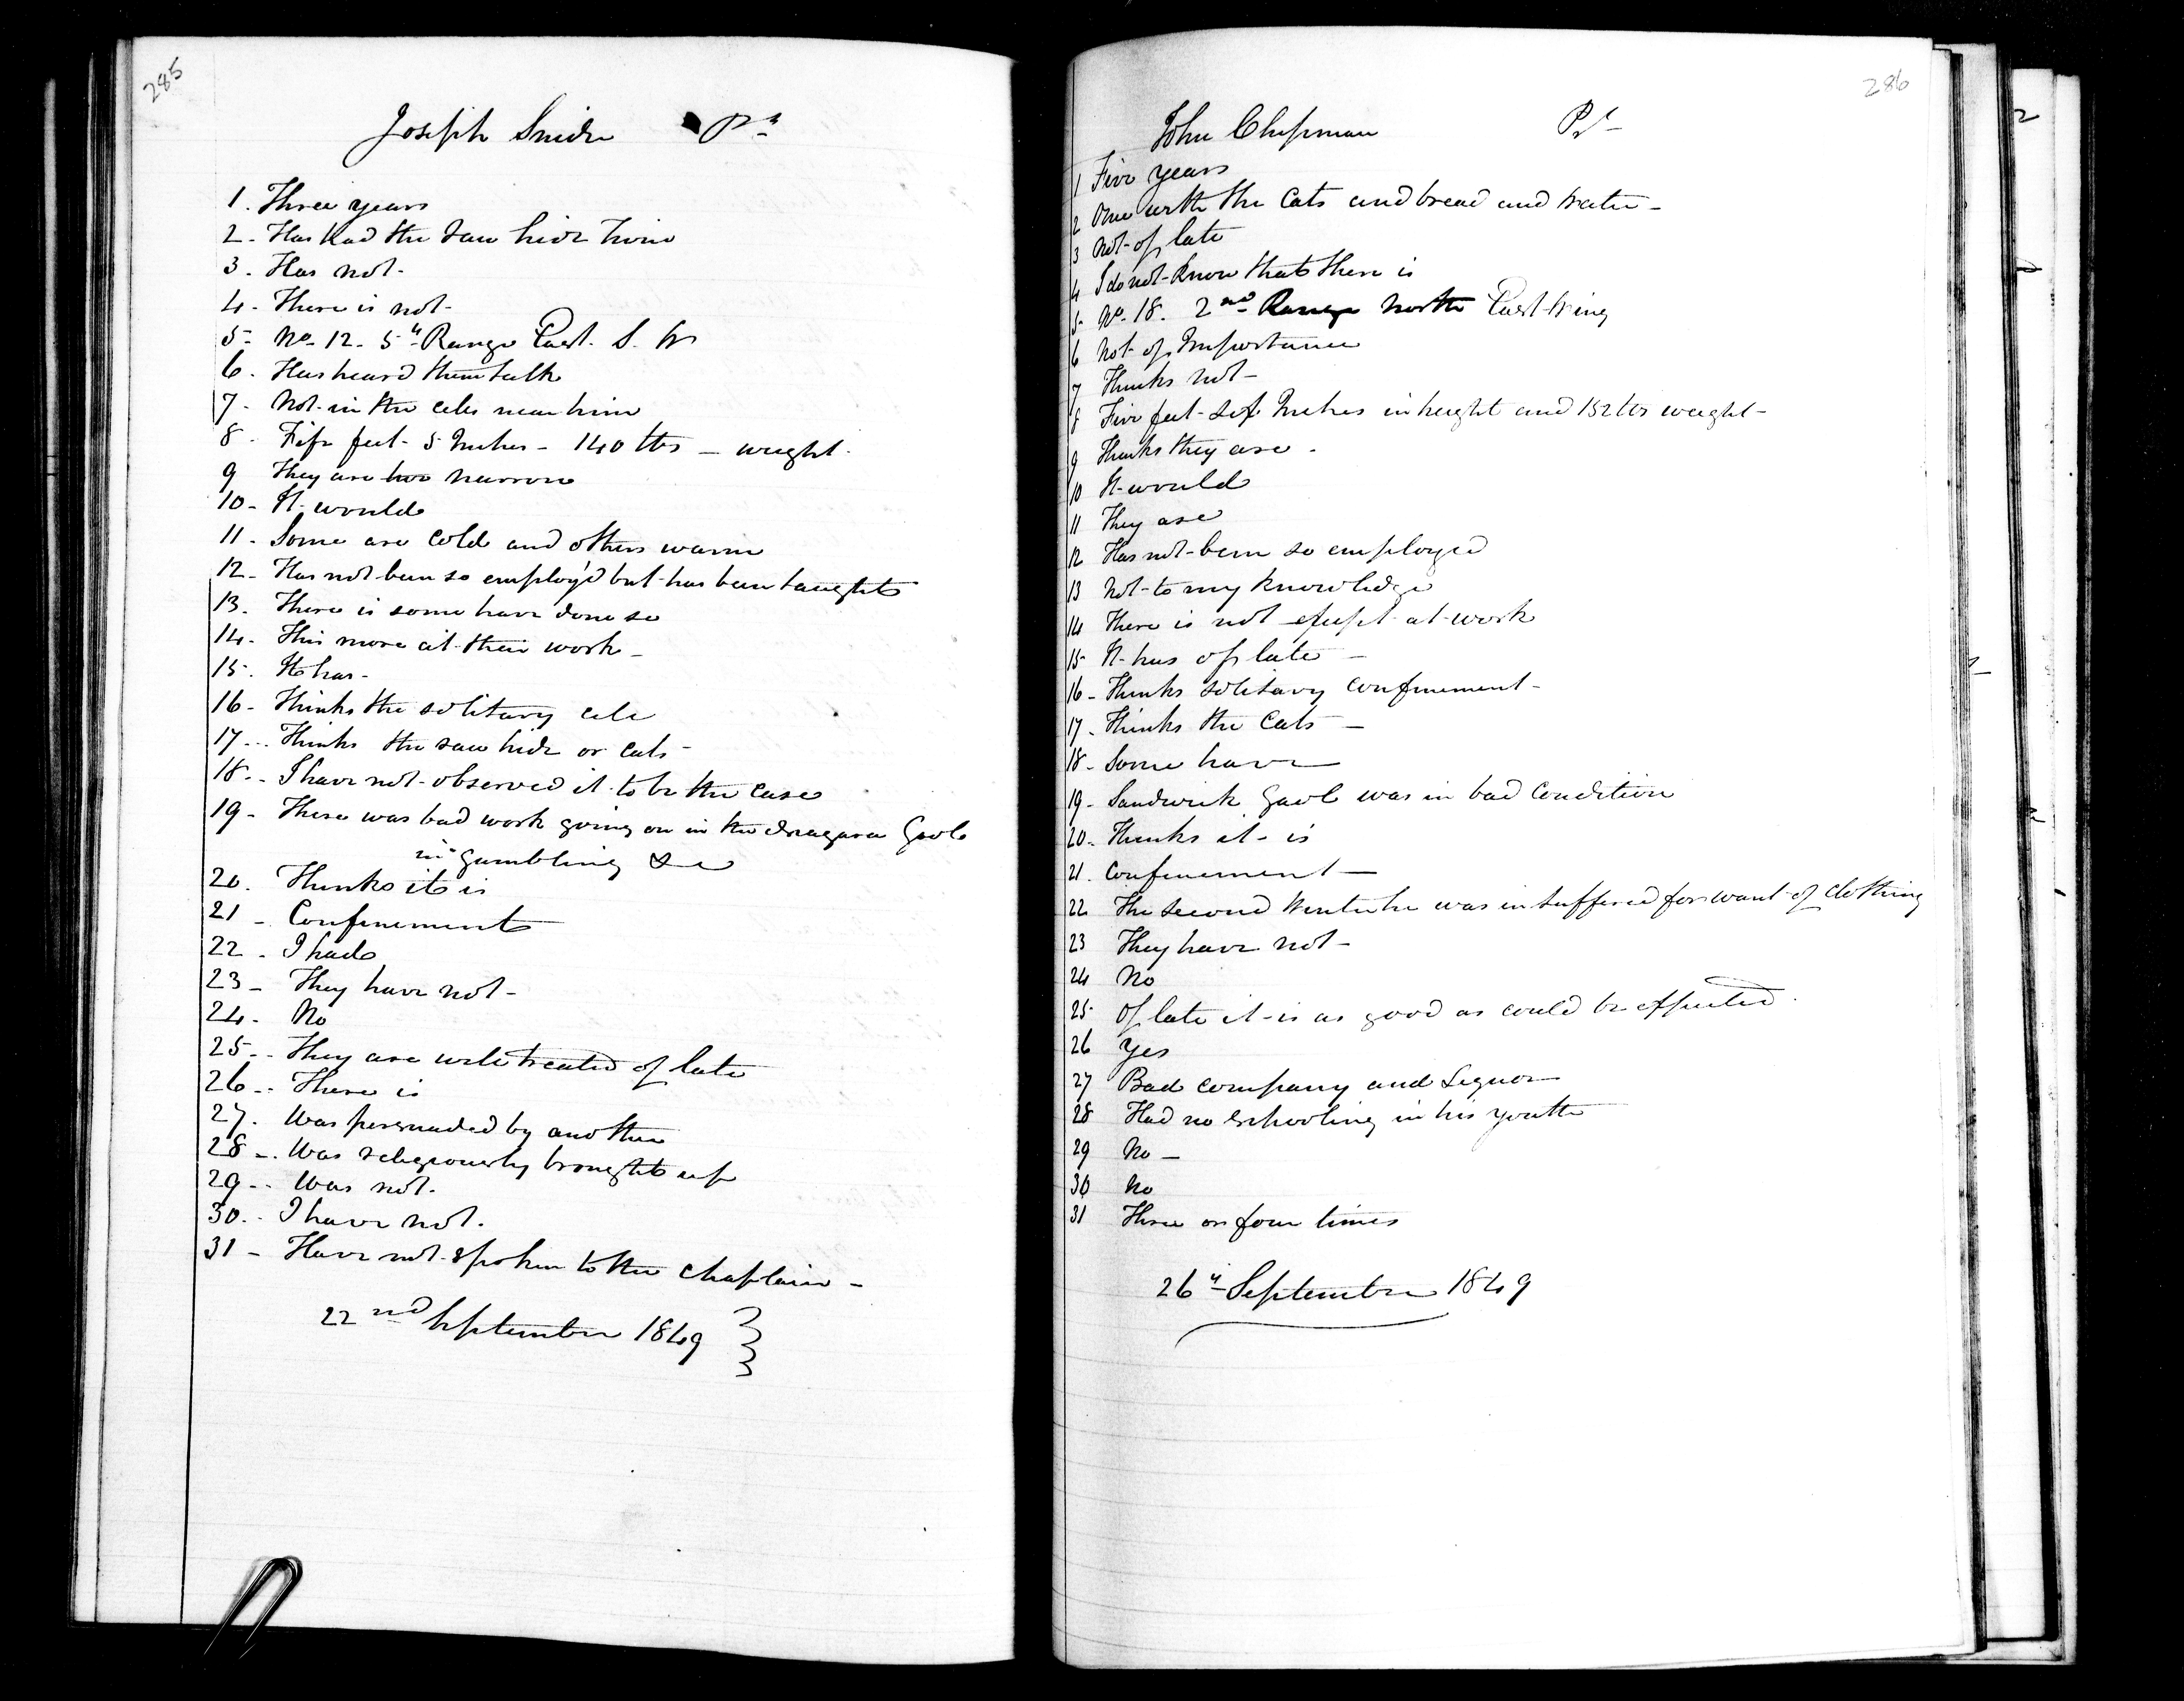 285
Joseph Snider Pr
1. Three years
2. Has had the raw hide twice
3. Has not-
4. There is not-
5- No 12. 5th Range East. S. W
6. Has heard them talk
7. Not in the cells near him
8. Fife feet 5 Inches - 140 lbs - weight.
9 They are too narrow
10- It would
11. Some are Cold and others warm
12- Has not been so employ'd but has been taught
13. There is some have done so
14. This more at their work-
15. It has-
16- Thinks the solitary cell
17- Thinks the raw hide or cats-
18- I have not observed it to be the case
19- There was bad work going on in the Niagara Gaol
in gambling &c
20. Thinks it is
21- Confinement
22. I had
23- They have not-
24. No
25- They are well treated of late
26- There is
27. Was persuaded by another
28- Was religiously brought up
29- Was not.
30. I have not.
31- Have not spoken to the Chaplain-
22nd September 1849
286
John Chapman Pr
1 Five years
2 One with the Cats and bread and water-
3 Not of late
4 I do not know that there is
5- No. 18. 2nd Range North East Wing
6 Not of Importance
7 Thinks not-
8 Five feet six Inches in height and 152 lbs weight-
9 Thinks they are.
10 It would
11 They are
12 Has not been so employed
13 Not to my knowledge
14 There is not except at work
15 It has of late-
16- Thinks solitary confinement-
17- Thinks the Cats-
18- Some have
19- Sandwich Gaol was in bad Condition
20- Thinks it is
21. Confinement-
22 The second Winter he was in suffered for want of clothing
23 They have not-
24 No
25- Of late it is as good as could be expected.
26 Yes
27 Bad Company and Liquor
28 Had no schooling in his youth
29 No-
30 No
31 Three or four times
26th September 1849